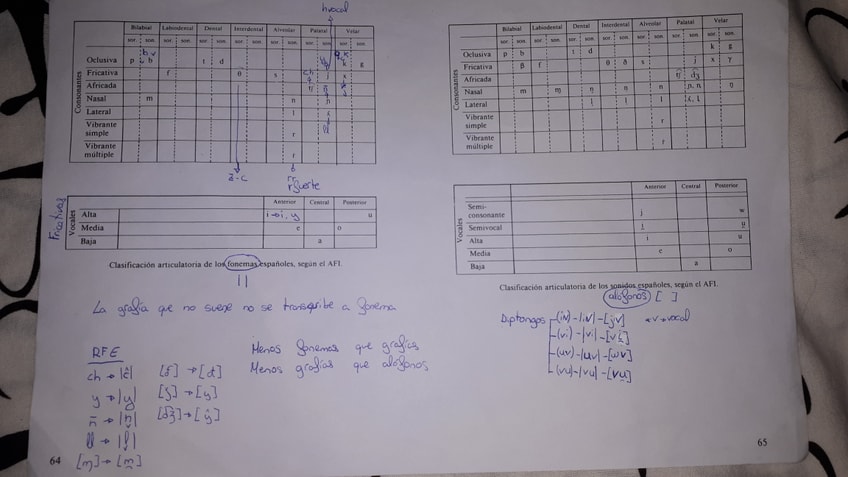 h vocal
Bilabial Labiodental Dental Interdental Alveolar Palatal Velar
sor. son. sor. son. sor. son. sor. son. sor. son. sor. son. sor. son.
Consonantes
b v
Oclusiva p b t d k g
Fricativa f θ s j x
ch
Africada
Nasal m n
Lateral l ʎ
ll
Vibrante simple r
Vibrante múltiple r
z-c
rr
r fuerte
Fricativas
Vocales
Anterior Central Posterior
Alta i→i, y u
Media e o
Baja a
Clasificación articulatoria de los fonemas españoles, según el AFI.
| |
La grafía que no suene no se transcribe a fonema
RFE
Menos fonemas que grafías
Menos grafías que alófonos
ch → |ĉ|
y → |y|
ñ →
ll →
[ɱ] → [m̯]
→ [d]
→ [y]
[d͡ʒ] → [ŷ]
64
Bilabial Labiodental Dental Interdental Alveolar Palatal Velar
sor. son. sor. son. sor. son. sor. son. sor. son. sor. son. sor. son.
Consonantes
Oclusiva p b t d k g
Fricativa β f θ ð s j x γ
Africada d͡ʒ
Nasal m ɱ n̪ n n ɲ, n ŋ
Lateral l l l ʎ, l
Vibrante simple r
Vibrante múltiple r
Vocales
Anterior Central Posterior
Semiconsonante j w
Semivocal i̯ u̯
Alta i u
Media e o
Baja a
Clasificación articulatoria de los sonidos españoles, según el AFI.
alófonos [ ]
Diptongos (iv) - |iv| - [jv] *v→vocal
(vi) - |vi| - [vi̯]
(uv) - |uv| - [wv]
(vu) - |vu| - [vu̯]
65